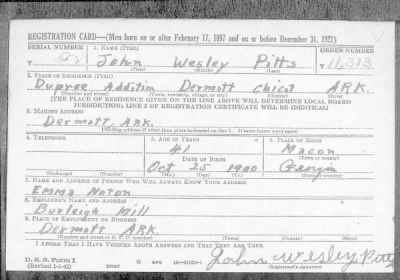 REGISTRATION CARD—(Men born on or after February 17, 1897 and on or before December 31, 1921)
SERIAL NUMBER 1. NAME (Print) ORDER NUMBER
T John Wesley Pitts T 11,313
(First) (Middle) (Last)
2. PLACE OF RESIDENCE (Print)
Dupree Addition Dermott Chicot ARK.
(Number and street) (Town, township, village, or city) (County) (State)
[THE PLACE OF RESIDENCE GIVEN ON THE LINE ABOVE WILL DETERMINE LOCAL BOARD
JURISDICTION; LINE 2 OF REGISTRATION CERTIFICATE WILL BE IDENTICAL]
3. MAILING ADDRESS
Dermott, ARK.
[Mailing address if other than place indicated on line 2. If same insert word same]
4. TELEPHONE 5. AGE IN YEARS 6. PLACE OF BIRTH
41 Macon
DATE OF BIRTH (Town or county)
Oct 25 1900 Georgia
(Exchange) (Number) (Mo.) (Day) (Yr.) (State or country)
7. NAME AND ADDRESS OF PERSON WHO WILL ALWAYS KNOW YOUR ADDRESS
Emma Noton
8. EMPLOYER'S NAME AND ADDRESS
Burleigh Mill
9. PLACE OF EMPLOYMENT OR BUSINESS
Dermott ARK.
(Number and street or R. F. D. number) (Town) (County) (State)
I AFFIRM THAT I HAVE VERIFIED ABOVE ANSWERS AND THAT THEY ARE TRUE.
D. S. S. Form 1
(Revised 1-1-42) (over) GPO 16-21630-1 John Wesley Pitts
(Registrant's signature)